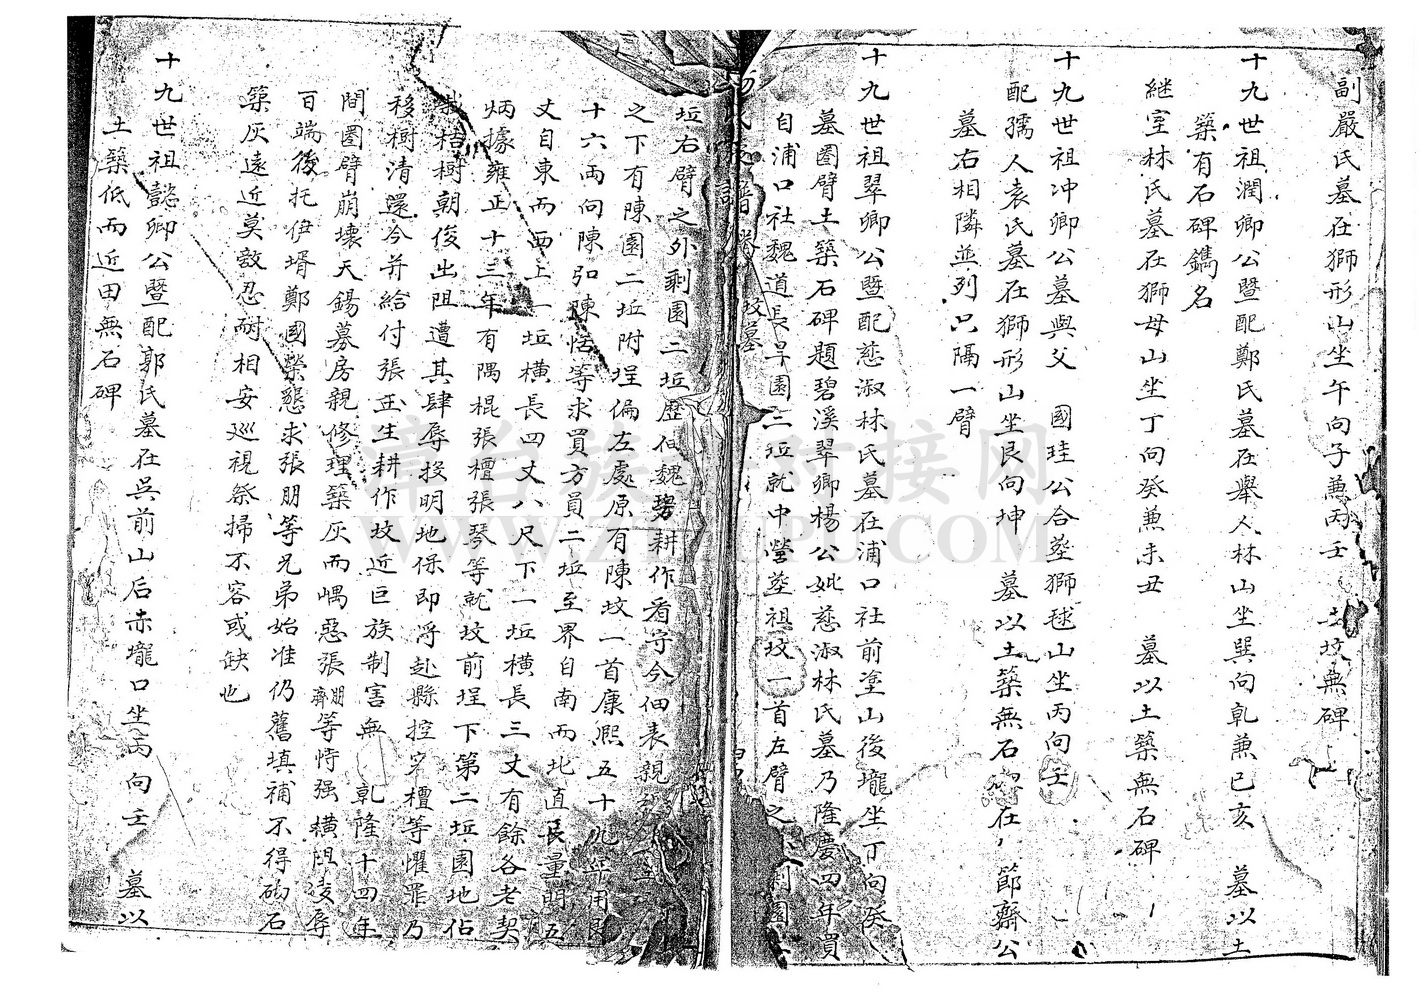 副嚴氏墓在獅形山坐午向子兼丙壬 土坟無碑
十九世祖潤卿公暨配鄭氏墓在舉人林山坐巽向乹兼巳亥 墓以土
築有石碑鐫名
継室林氏墓在獅母山坐丁向癸兼未丑 墓以土築無石碑
十九世祖冲卿公墓與父 國珪公合塟獅毬山坐丙向壬
配孺人袁氏墓在獅形山坐艮向坤 墓以土築無石 在 節齋公
墓右相隣並列只隔一臂
十九世祖翠卿公暨配慈淑林氏墓在浦口社前塗山後壠坐丁向癸
墓圈臂土築石碑題碧溪翠卿楊公妣慈淑林氏墓乃隆慶四年買
自浦口社魏道長旱園三坵就中營塟祖坟一首左臂之 剩園
氏族譜 坟墓
坵右臂之外剩園二坵歷佃魏 耕作看守今佃表親
之下有陳園二坵附埕偏左處原有陳坟一首康熈五十九年用
十六両向陳弘陳恬等求買方員二坵至界自南而北直長量明五
丈自東而西上一坵橫長四丈八尺下一坵橫長三丈有餘各老契
炳據雍正十三年有隅棍張檀張琴等就坟前埕下第二坵園地佔
桔樹朝後出阻遭其肆辱投明地保即浮赴縣控究檀等懼罪乃
移樹清還今并給付張玉生耕作坟近巨族制害無 乹隆十四年
間圈臂崩壞天錫募房親修理築灰而嵎惡張朋齊等恃强橫阻凌辱
百端後托伊壻鄭國榮懇求張朋等兄弟始准仍舊填補不得砌石
築灰遠近莫敢忍耐相安廵視祭掃不容或缺也
十九世祖懿卿公暨配郭氏墓在吳前山后赤壠口坐丙向壬 墓以
土築低而近田無石碑
漳台族 对接网
WWW.ZTZUPU.COM